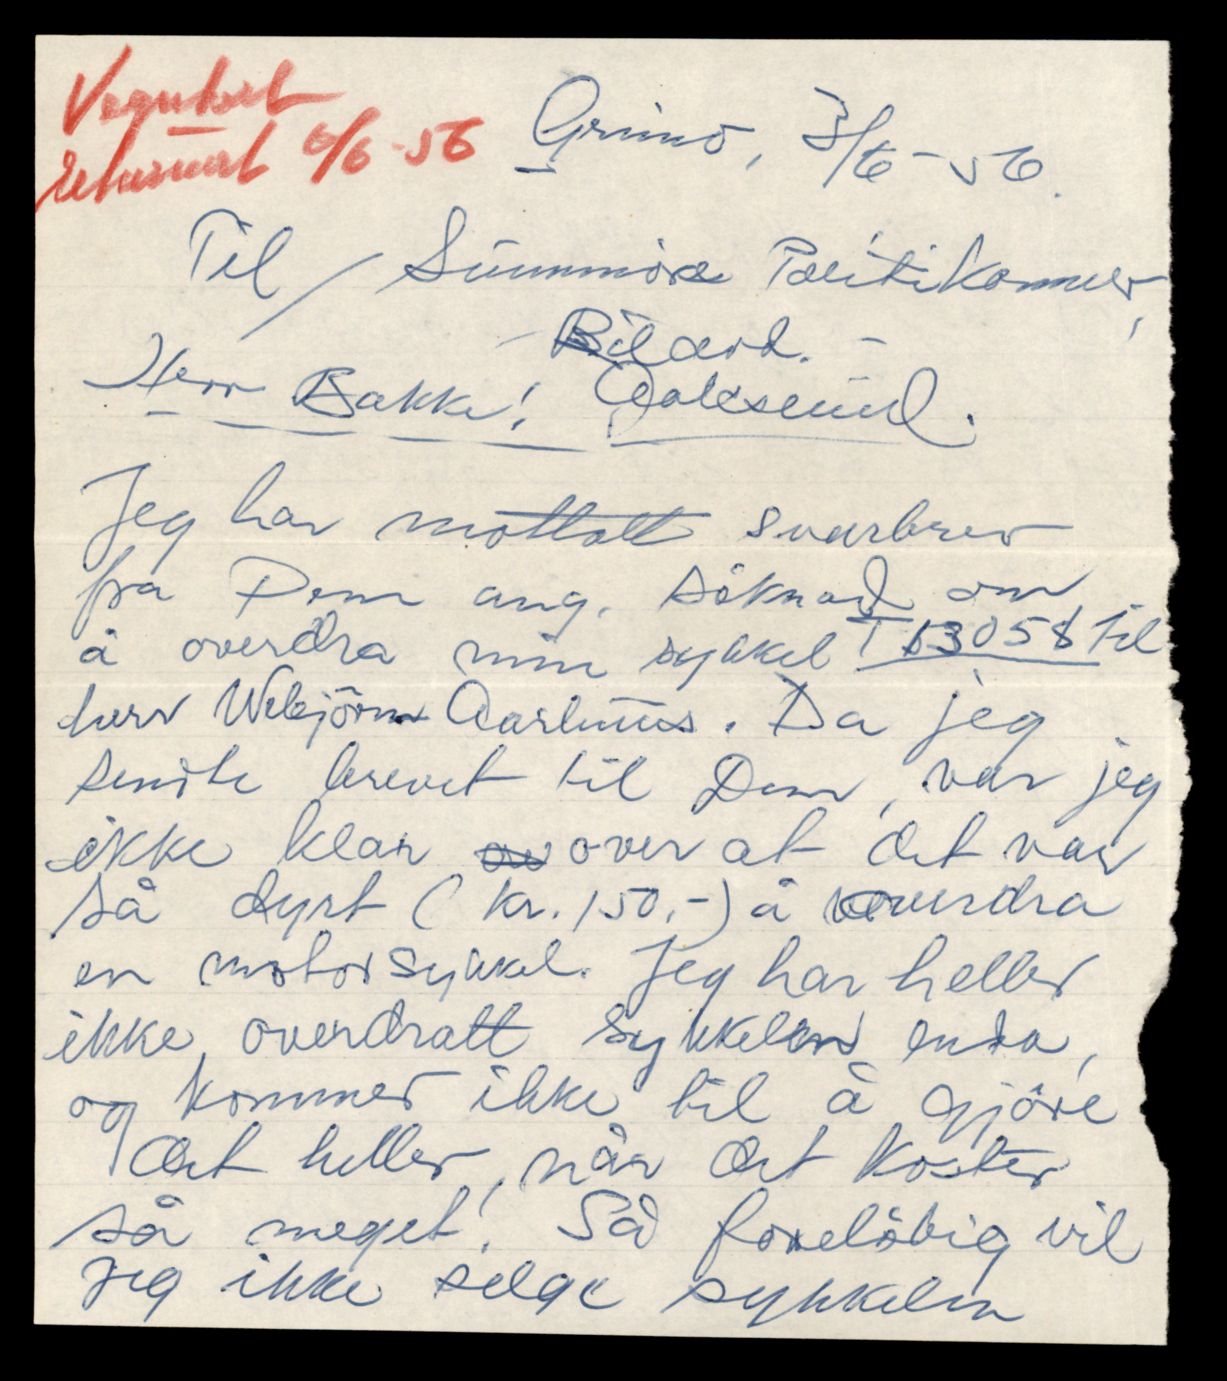 Vognkort
returnert 6/6-56
Grimo, 3/6-56.
Til / Sunnmöre Politikammer,
- Bilavd. -
Herr Bakke! Aalesund.
Jeg har mottatt svarbrev
fra Dem ang. söknad om
å overdra min sykkel T 13058 til
herr Webjörn Aarhuus. Da jeg
sendte brevet til Dem, var jeg
ikke klar over at det var
så dyrt (kr. 150,-) å overdra
en motorsykkel. Jeg har heller
ikke overdratt sykkelen enda,
og kommer ikke til å gjöre
det heller, når det koster
så meget! Så foreløbig vil
jeg ikke selge sykkelen